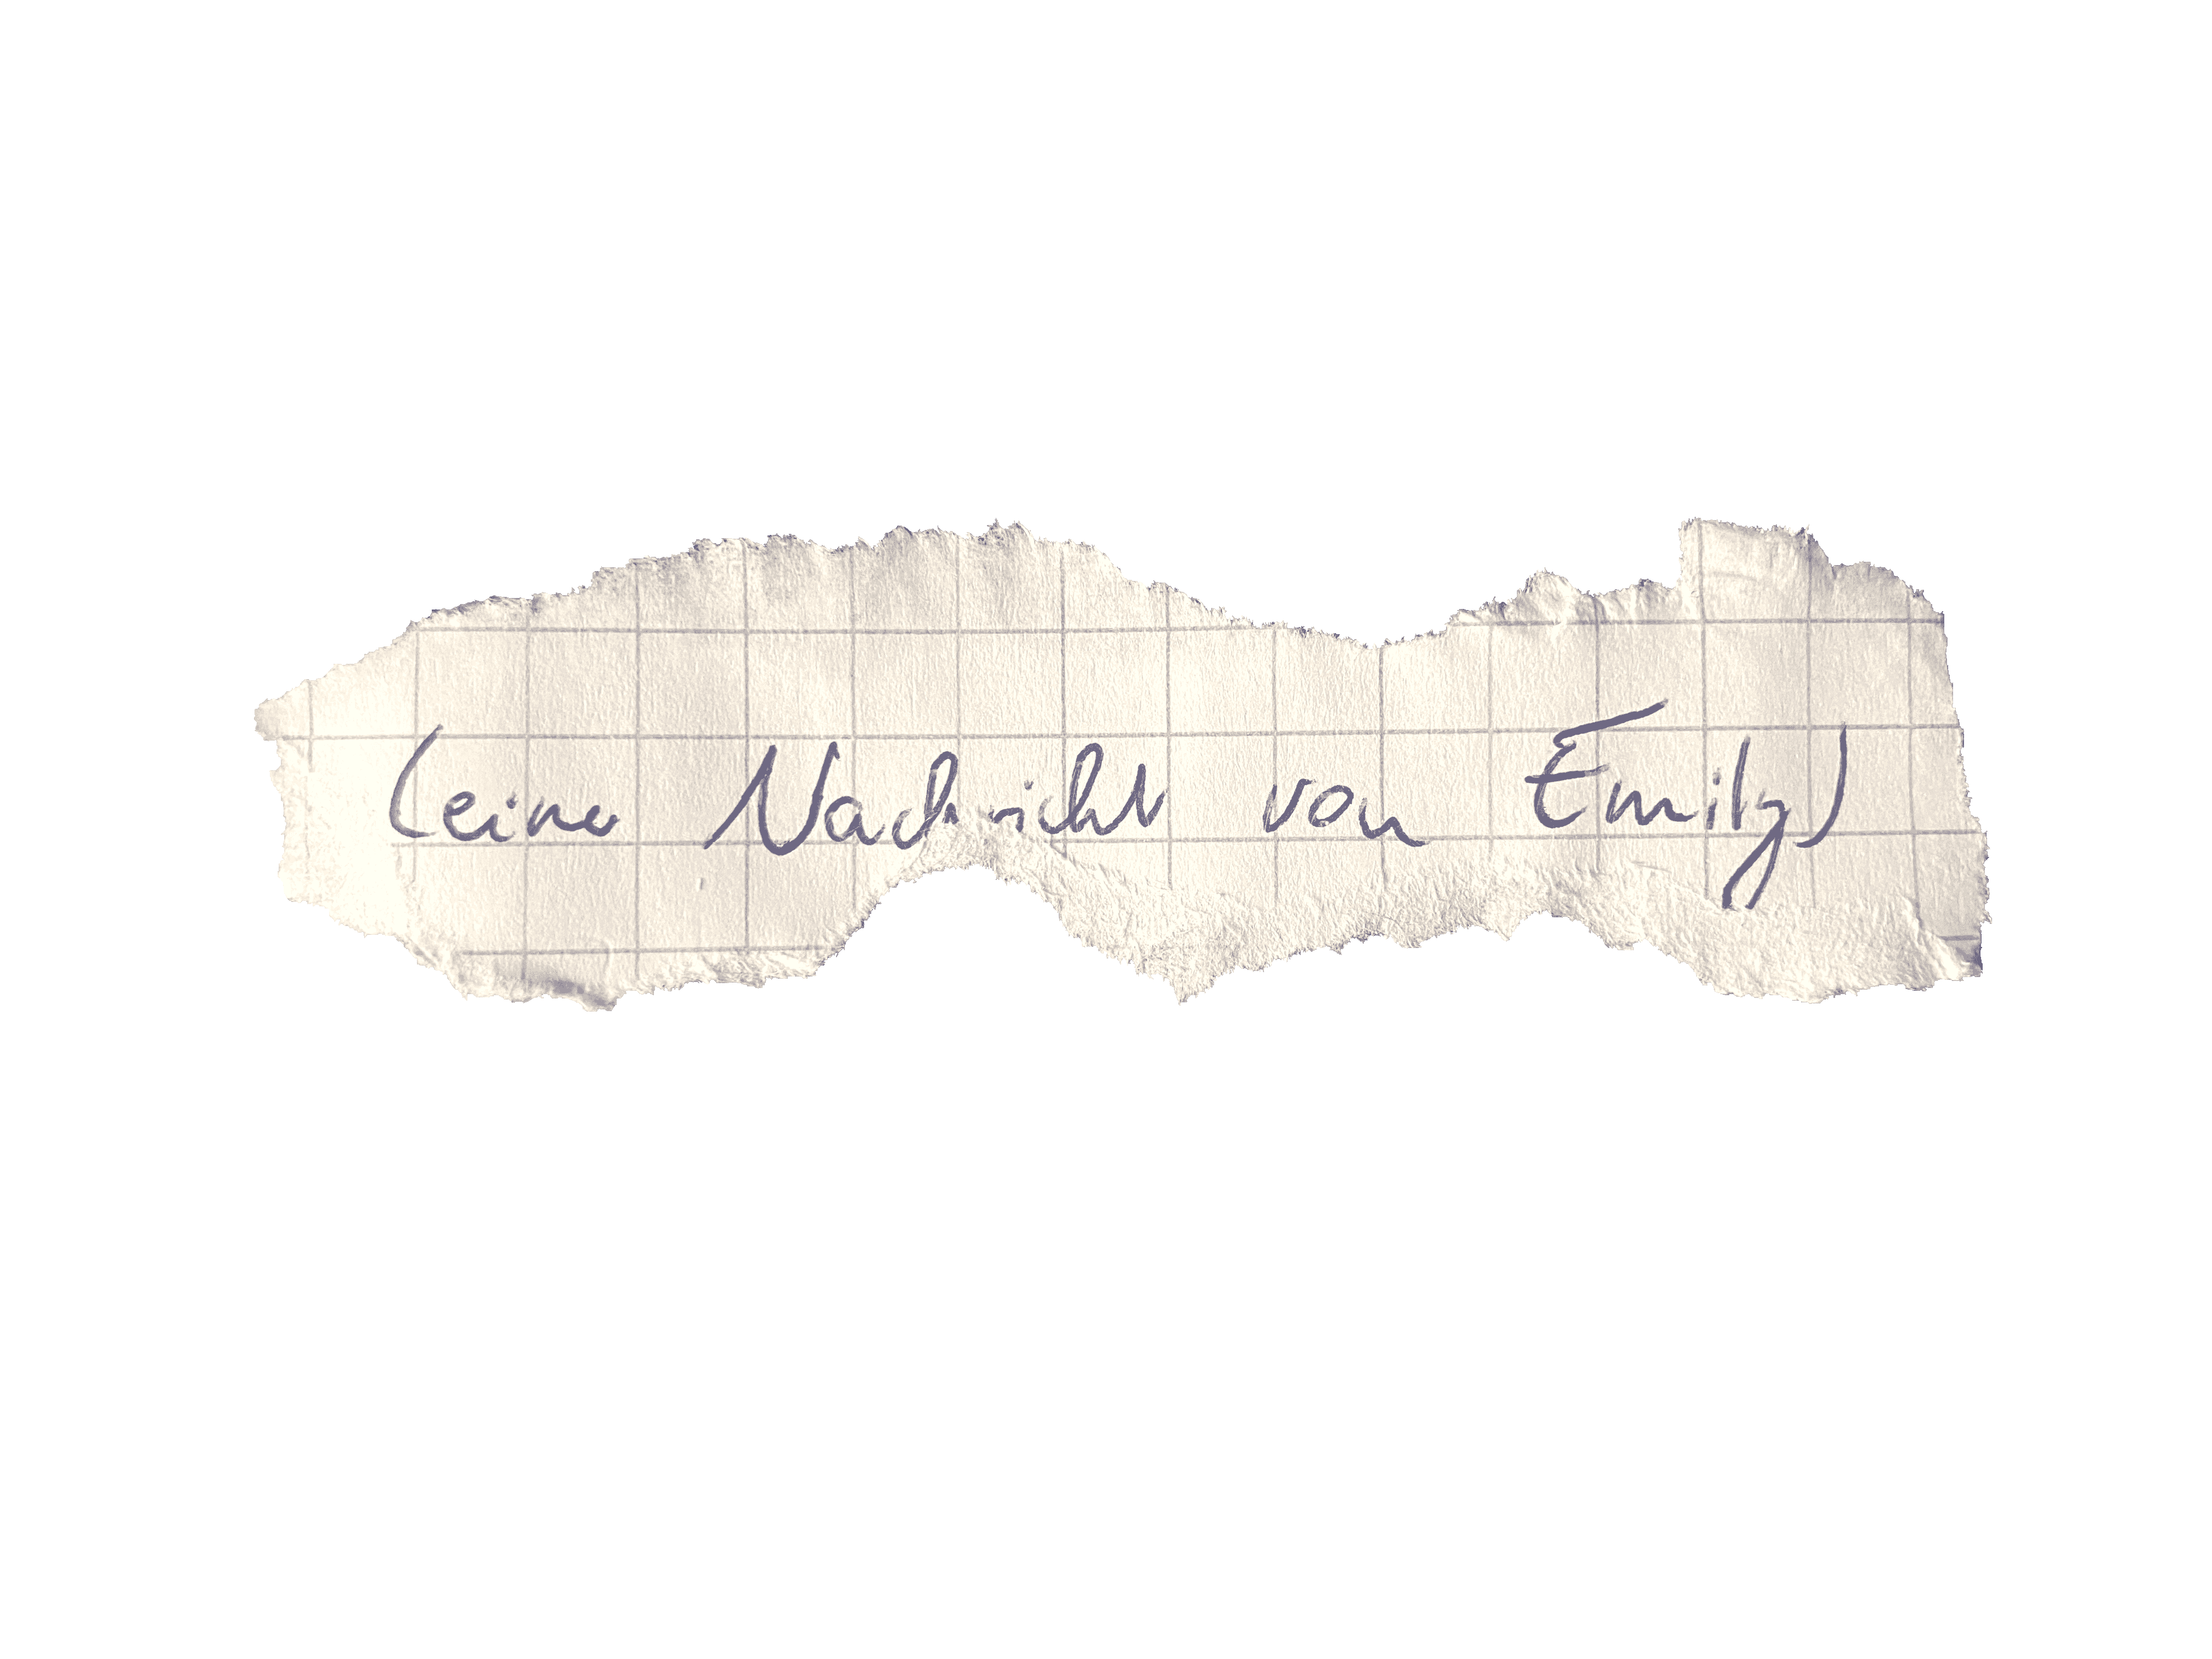 (eine Nachricht von Emily)